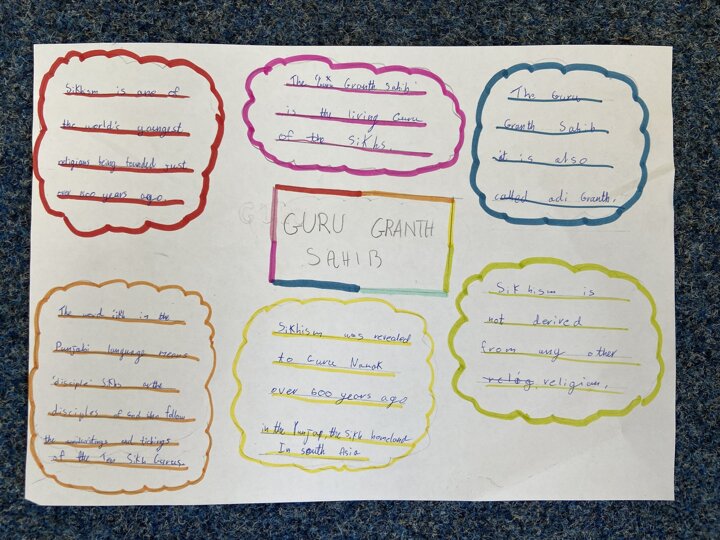 Sikhism is one of
the world's youngest
religions being founded just
over 500 years ago.
The Guru Granth Sahib
is the living Guru
of the Sikhs.
The Guru
Granth Sahib
it is also
called adi Granth.
GURU GRANTH
SAHIB
The word sikh in the
Punjabi language means
'disciple' Sikh are the
disciples of God who follow
the writings and
of the Ten Sikh Gurus.
Sikhism was revealed
to Guru Nanak
over 600 years ago
in the Punjap, the Sikh homeland
In south Asia
Sikhism is
not derived
from any other
religion.